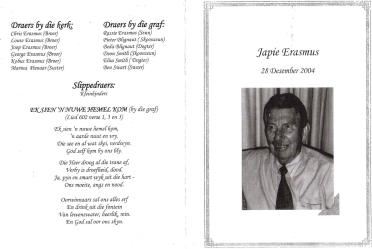 Draers by die kerk:
Chris Erasmus (Broer)
Louis Erasmus (Broer)
Joop Erasmus (Broer)
George Erasmus (Broer)
Kobus Erasmus (Broer)
Marina Wessels (Suster)
Draers by die graf:
Rassie Erasmus (Seun)
Pieter Blignaut (Skoonseun)
Beda Blignaut (Dogter)
Deon Smith (Skoonseun)
Elisa Smith (Dogter)
Ben Stuart (Swaer)
Slippedraers:
Kleinkinders
EK SIEN 'N NUWE HEMEL KOM (by die graf)
(Lied 602 verse 1, 3 en 5)
Ek sien 'n nuwe hemel kom,
'n aarde nuut en vry.
Die see en al wat skei, verdwyn,
God self kom by ons bly.
Die Heer droog al die trane af,
Verby is droefheid, dood.
Ja, pyn en smart wyk uit die hart -
Ons moeite, angs en nood.
Oorwinnaars sal ons alles erf
En drink uit die fontein
Van lewenswater, heerlik, rein.
En God sal oor ons skyn.
Japie Erasmus
28 Desember 2004